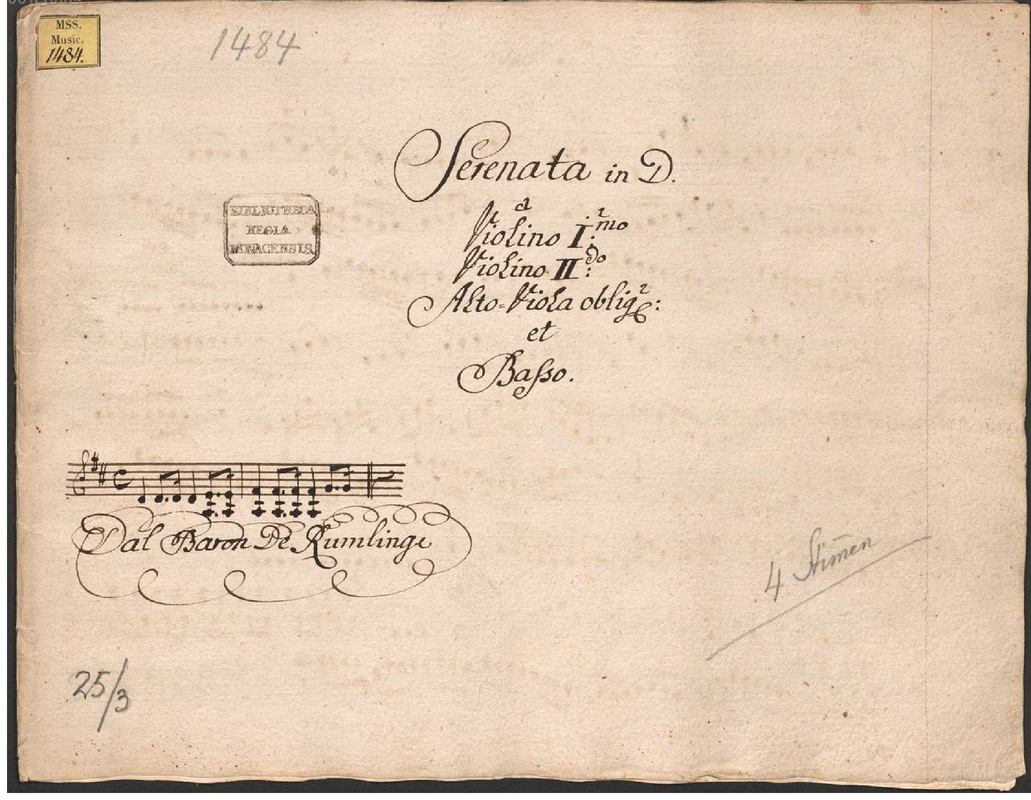 MSS.
Music.
1484.
1484
Serenata in D.
a
Violino I.mo
Violino II.do
Alto-Viola oblig:
et
Basso.
BIBLIOTHECA
REGIA
MONACENSIS.
Dal Baron De Rumlinge
4 Stim̅en
25/3